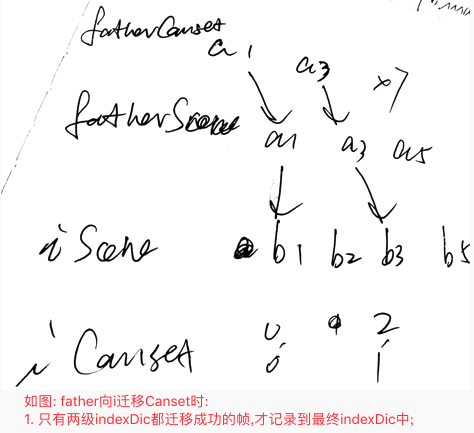 fatherCanset
a1 a3 x7
fatherScene a1 a3 a5
iScene b1 b2 b3 b5
iCanset 0 2
0 1
如图: father向i迁移Canset时:
1. 只有两级indexDic都迁移成功的帧,才记录到最终indexDic中;